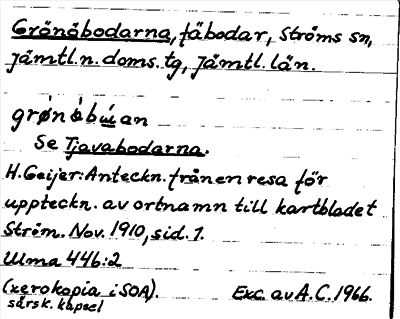 Grönåbodarna, fäbodar, Ströms sn,
Jämtl.n.doms.tg, Jämtl.län.
grøǹ àbúan
Se Tjavabodarna.
H.Geijer:Anteckn.från en resa för
uppteckn. av ortnamn till kartbladet
Ström. Nov. 1910, sid. 1.
Ulma 446:2
(xerokopia i SOA).
särsk. kapsel
Exc. av A.C. 1966.